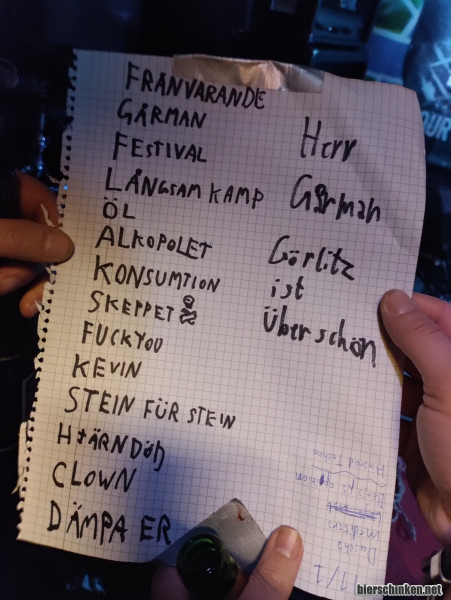 FRÅNVARANDE
GÅRMAN
FESTIVAL
LÅNGSAM KAMP
ÖL
ALKOPOLET
KONSUMTION
SKEPPET
FUCK YOU
KEVIN
STEIN FÜR STEIN
HJÄRNDÖD
CLOWN
DÄMPA ER
Herr
Garman
Görlitz
ist
Überschön
1/1
OUR
bierschinken.net